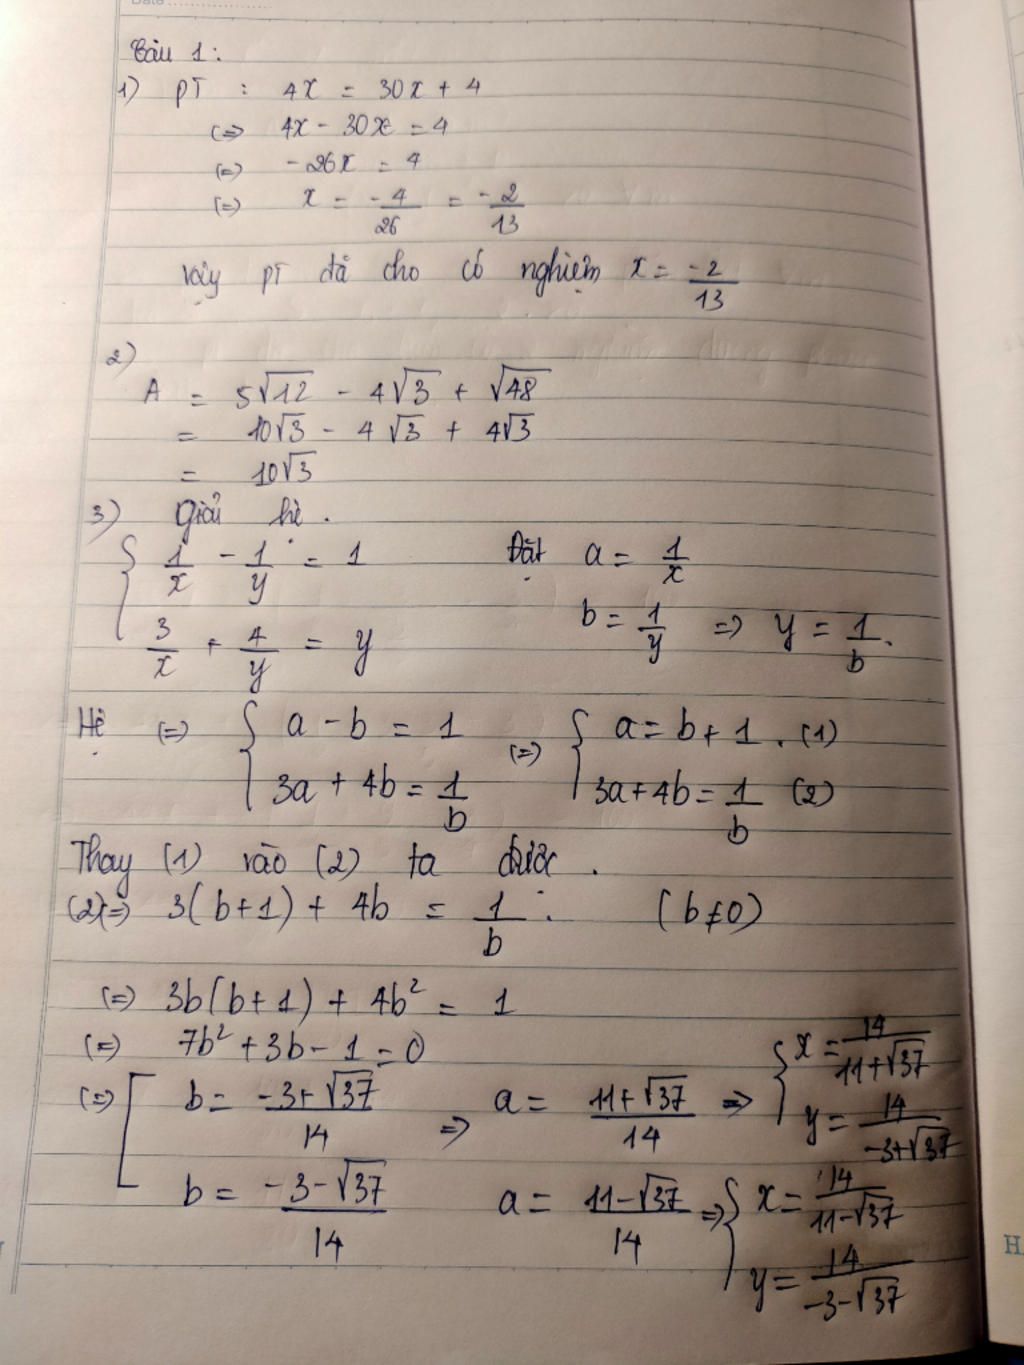 Date
Câu 1:
1) PT : 4x = 30x + 4
(=) 4x - 30x = 4
(=) -26x = 4
(=) x = -4/26 = -2/13
vậy pt đã cho có nghiệm x = -2/13
2)
A = 5√12 - 4√3 + √48
= 10√3 - 4√3 + 4√3
= 10√3
3) Giải hệ.
{ 1/x - 1/y = 1 Đặt a = 1/x
3/x + 4/y = y b = 1/y => y = 1/b.
Hệ (=) { a - b = 1 (=) { a = b + 1. (1)
3a + 4b = 1/b 3a + 4b = 1/b (2)
Thay (1) vào (2) ta được.
(2)(=) 3(b+1) + 4b = 1/b. (b≠0)
(=) 3b(b+1) + 4b² = 1
(=) 7b² + 3b - 1 = 0
(=) [ b = (-3+√37)/14 => a = (11+√37)/14 => { x = 14/(11+√37)
y = 14/(-3+√37)
b = (-3-√37)/14 a = (11-√37)/14 => { x = 14/(11-√37)
y = 14/(-3-√37)